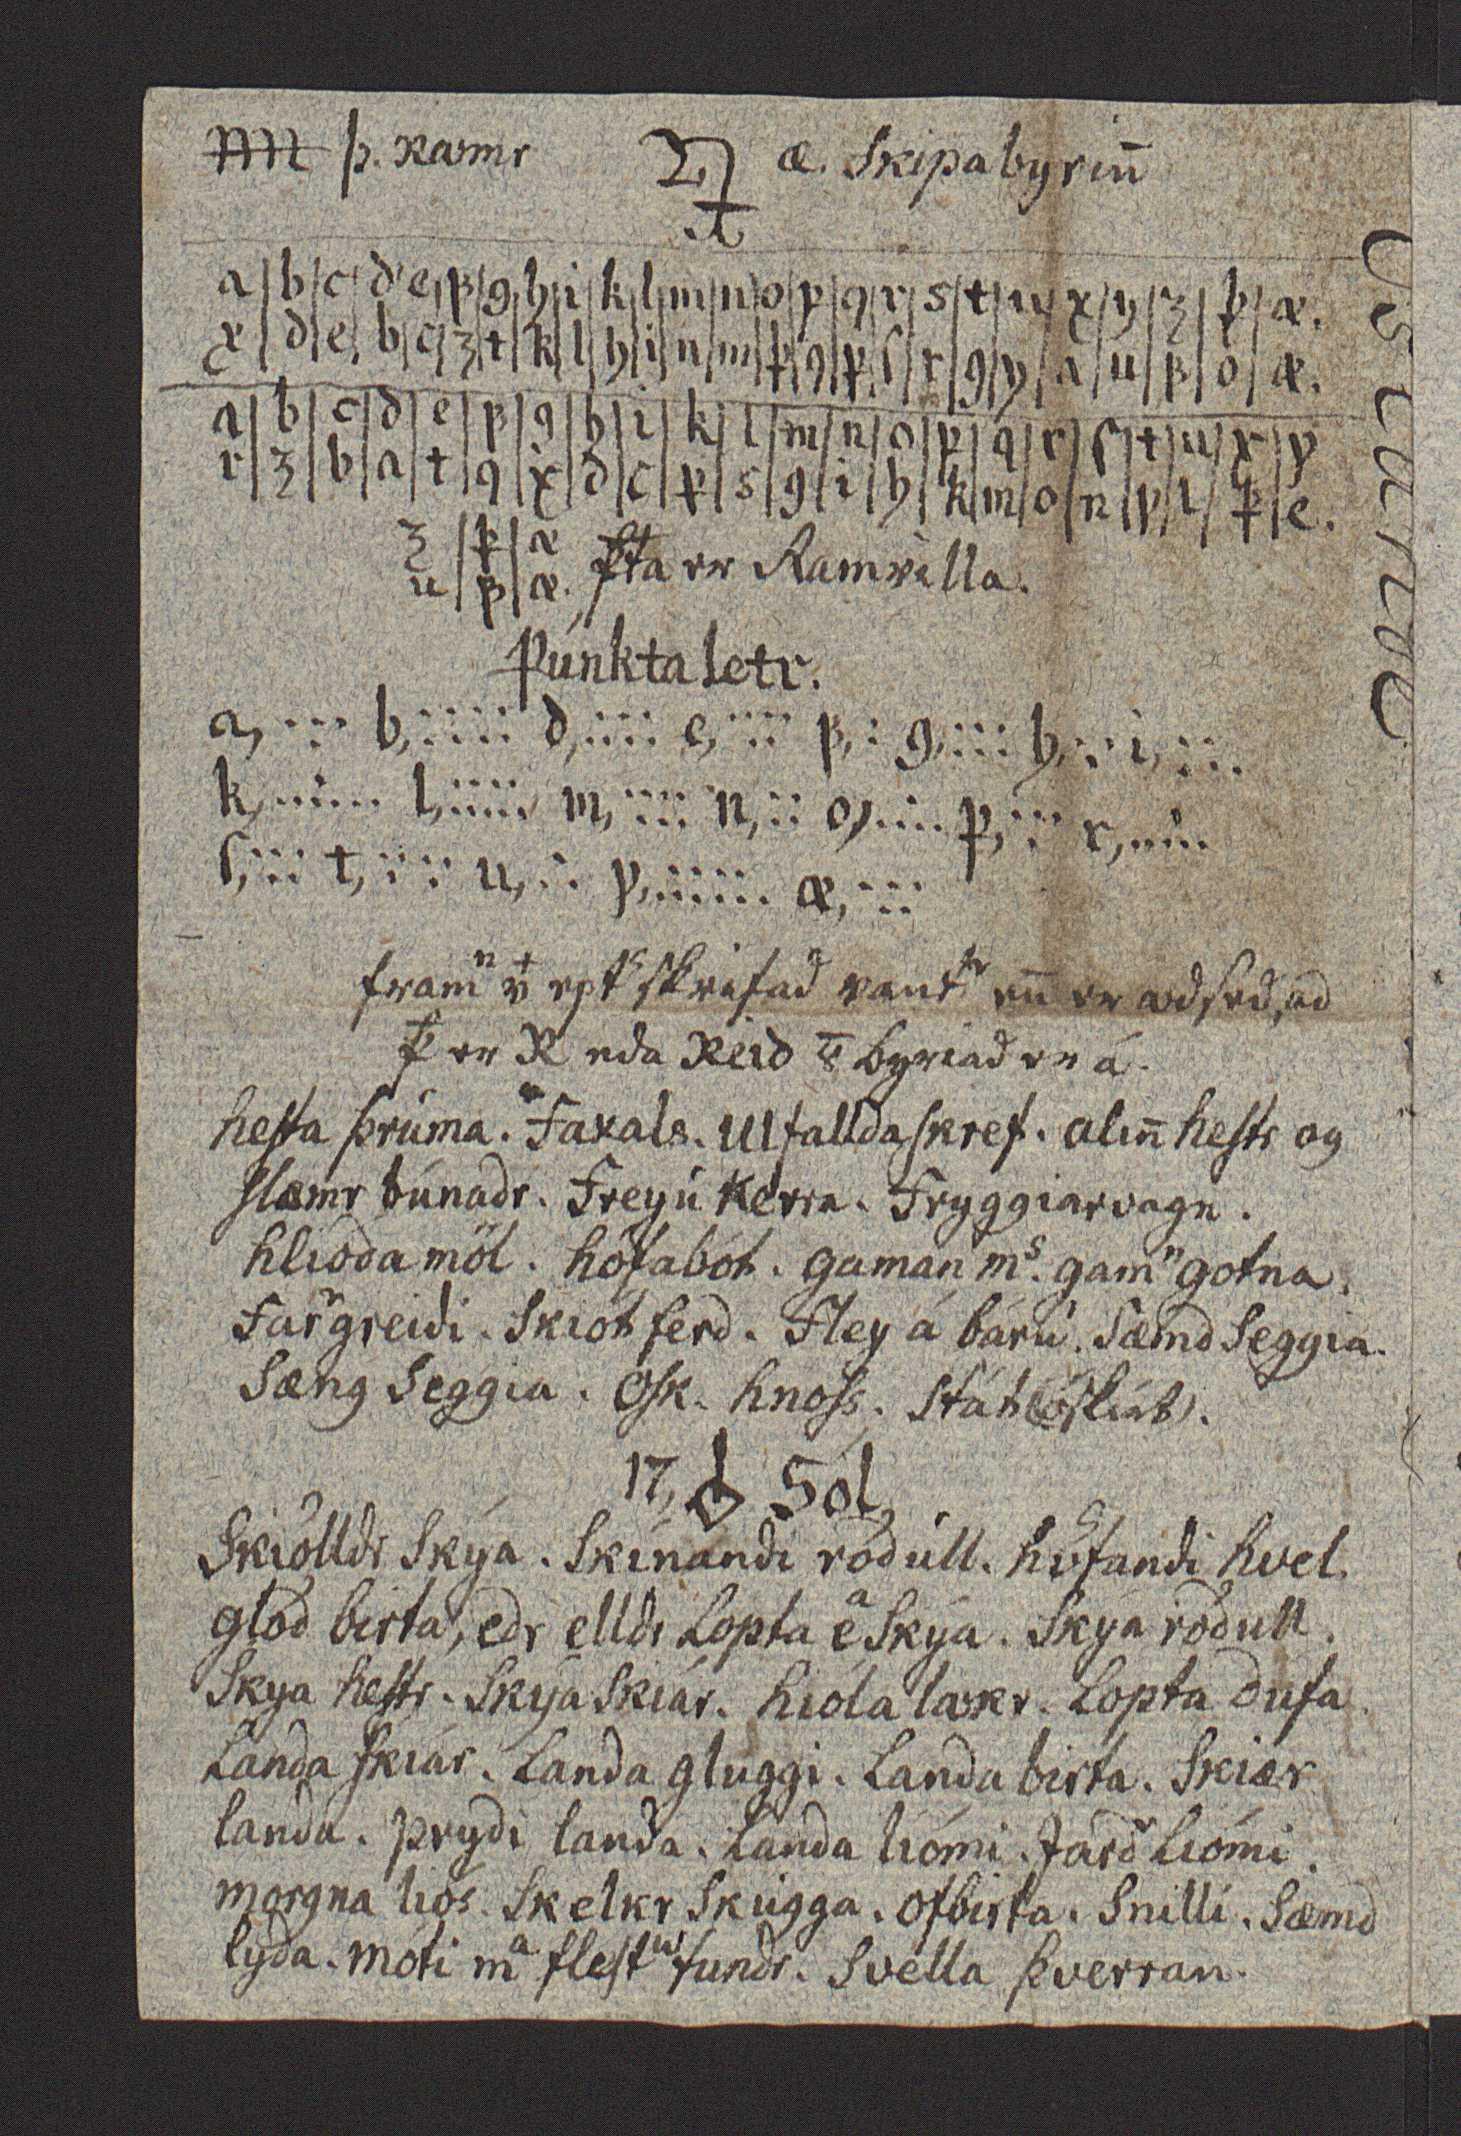 þ. Ramr æ. Skipabyrin̄
a b c d e f g h i k l m n o p q r s t u x y z þ æ.
x d e b c z t k l h i n m þ q p s r g y a u f o æ.
a b c d e f g h i k l m n o p q r s t u x y
r z b a t q x d c þ s g i h k m o n y l p e.
z þ æ
u f æ. þta er Ramvilla.
Púnktaletr.
a, b, d, e, f, g, h, i,
k, l, m, n, o, p, r,
s, t, u, y, æ,
skrifad en̄ er ad
er R eda Reid byriad er á.
hesta þrúma. Faxals. Ulfalldaskref. alin̄ hests og
slæmr búnadr. Freyú Kerra. Fryggiarvagn.
hlioda möl. hófabót. gaman mˢ. gamⁿ gotna.
Farʳgreidi. Skiót ferd. Fley á bárú. Sæmd Seggia.
Sæng Seggia. Osk. hnoss. Stát
17, Sól
Skiölldr Skýa. Skínandi rödúll. hvel.
glód birta, edr elldr Lopta eᵃ Skýa. Skýa rödull.
Skya hestr. Skýa Skiár. hióla lækr. Lopta dufa.
Landa skiár. Landa gluggi. Landa birta. Skiær
landa. prydi landa. Landa liómi. Jard Liómi.
morgna liós. Skelkr Skúgga. ofbirta. Snilli. Sæmd
lyda. móti mᵃ flest fundr. Svella þverran.